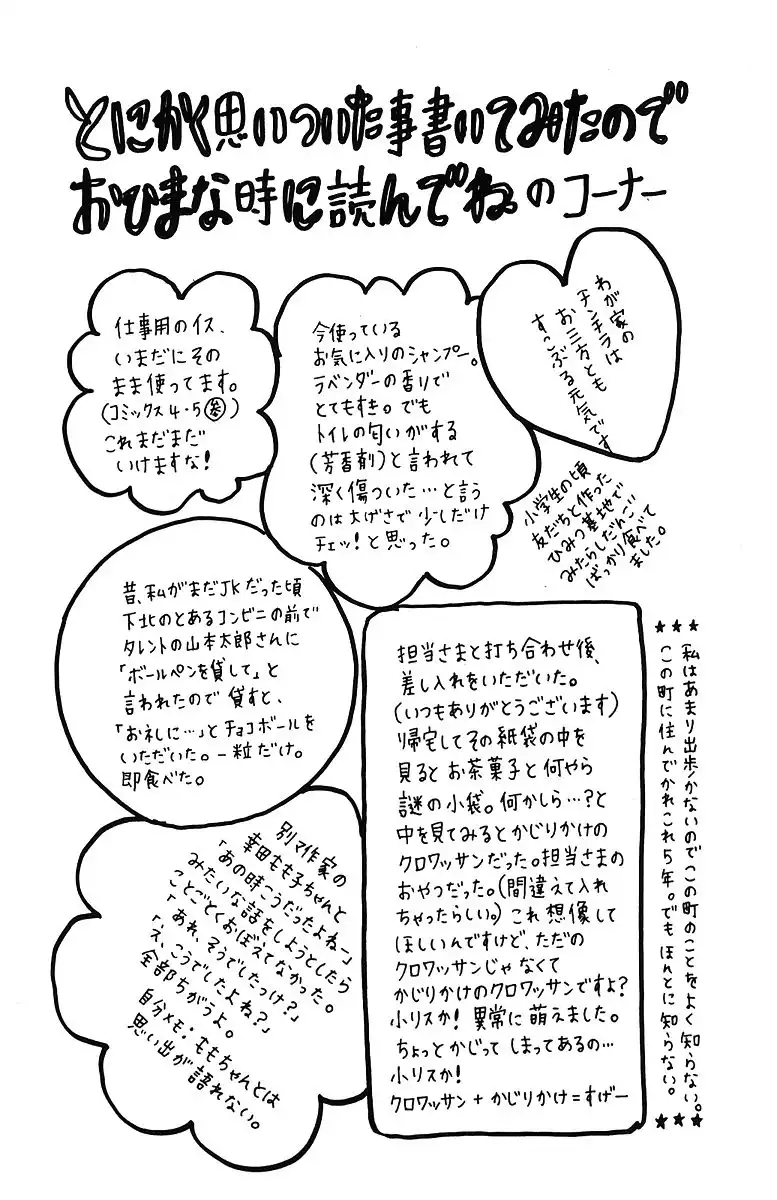 とにかく思いついた事書いてみたので
おひまな時に読んでね。のコーナー
わが家の
チンチラは
お三方とも
すこぶる元気です
今使っている
お気に入りのシャンプー。
ラベンダーの香りで
とてもすき。でも
トイレの匂いがする
(芳香剤)と言われて
深く傷ついた…と言う
のは大げさで少しだけ
チェッ!と思った。
仕事用のイス、
いまだにその
まま使ってます。
(コミックス4・5㊂)
これまだまだ
いけますな!
小学生の頃
友だちと作った
ひみつ基地で
みたらしだんご
ばっかり食べて
ました。
昔、私がまだJKだった頃
下北のとあるコンビニの前で
タレントの山本太郎さんに
「ボールペンを貸して」と
言われたので貸すと、
「お礼に…」とチョコボールを
いただいた。一粒だけ。
即食べた。
担当さまと打ち合わせ後、
差し入れをいただいた。
(いつもありがとうございます)
帰宅してその紙袋の中を
見るとお茶菓子と何やら
謎の小袋。何かしら…?と
中を見てみるとかじりかけの
クロワッサンだった。担当さまの
おやつだった。(間違えて入れ
ちゃったらしい。)これ想像して
ほしいんですけど、ただの
クロワッサンじゃなくて
かじりかけのクロワッサンですよ?
小リスか!異常に萌えました。
ちょっとかじってしまってあるの…
小リスか!
クロワッサン+かじりかけ=すげー
★★★私はあまり出歩かないのでこの町のことをよく知らない。
この町に住んでかれこれ5年。でもほんとに知らない。★★★
別マ作家の
幸田もも子ちゃんと
「あの時こうだったよねー」
みたいな話をしようとしたら
ことごとくおぼえてなかった。
「あれ、そうでしたっけ?」
「え、こうでしたよね?」
全部ちがうよ。
自分メモ:ももちゃんとは
思い出が語れない。